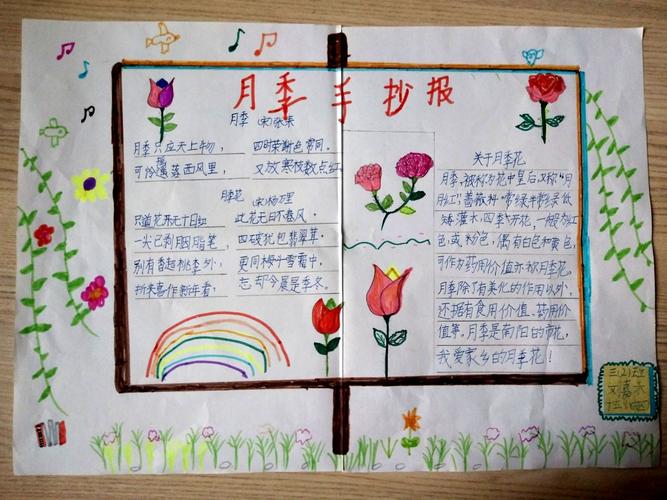 月季手抄报
月季 宋·张耒
月季只应天上物， 四时荣谢色常同。
可怜摇落西风里， 又放寒枝数点红
月季花 宋·杨万里
只道花开无十日红 此花无日不春风。
一尖已剥胭脂笔， 四破犹包翡翠茸。
别有香超桃李外， 更同梅斗雪霜中。
折来喜作新年看， 忘却今晨是季冬。
关于月季花
月季，被称为花中皇后，又称“月
月红”，蔷薇科。常绿半常绿低
矮灌木，四季开花，一般为红
色或粉色，偶有白色和黄色，
可作为药用价值亦称月季花。
月季除了有美化的作用以外，
还据有食用价值、药用价
值等。月季是南阳的市花，
我爱家乡的月季花！
三(2)班